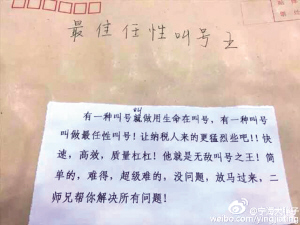 最佳任性叫号王
叫
有一种叫号就做用生命在叫号，有一种叫号
叫做最任性叫号！让纳税人来的更猛烈些吧!! 快
速，高效，质量杠杠！他就是无敌叫号之王！简
单的，难得，超级难的，没问题，放马过来，二
师兄帮你解决所有问题！
weibo.com/yingxibing